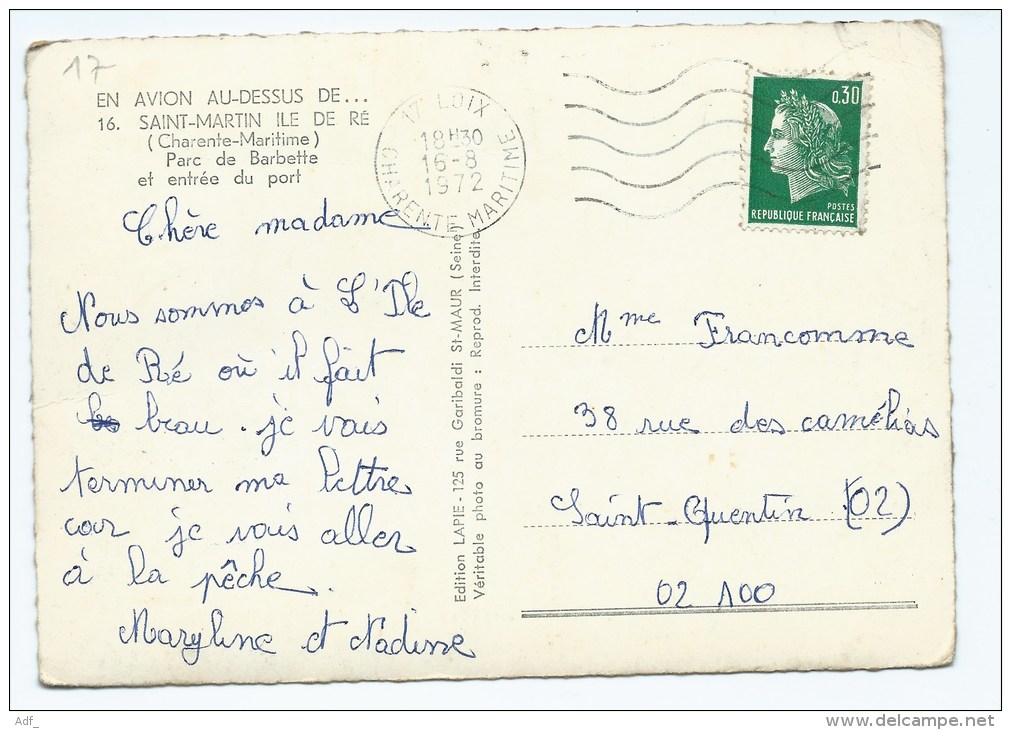 17
EN AVION AU-DESSUS DE...
16. SAINT-MARTIN ILE DE RÉ
(Charente-Maritime)
Parc de Barbette
et entrée du port
17 LOIX
18H30
16-8
1972
CHARENTE-MARITIME
0,30
POSTES
REPUBLIQUE FRANÇAISE
Chère madame
Nous sommes à L'Ile
de Ré où il fait
beau . je vais
terminer ma lettre
car je vais aller
à la pêche.
Maryline et Nadine
Edition LAPIE - 125 rue Garibaldi St-MAUR (Seine)
Véritable photo au bromure : Reprod. Interdite
Mme Francomme
38 rue des camélias
Saint-Quentin (02)
02 100
Adf_
www.delcampe.net